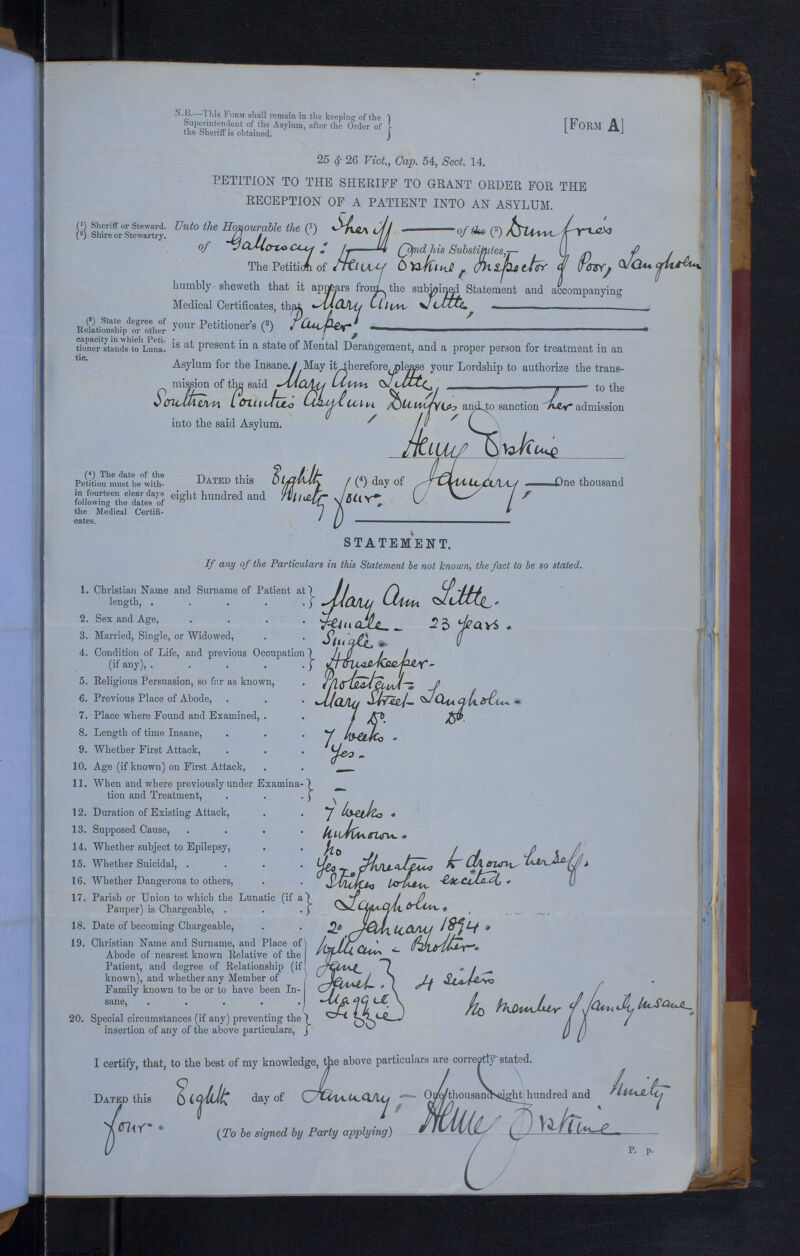 N.B.—This Form shall remain in the keeping of the
Superintendent of the Asylum, after the Order of
the Sheriff is obtained.
[Form A]
25 & 26 Vict., Cap. 54, Sect. 14.
PETITION TO THE SHERIFF TO GRANT ORDER FOR THE
RECEPTION OF A PATIENT INTO AN ASYLUM.
(1) Sheriff or Steward.
(2) Shire or Stewartry.
Unto the Honourable the (1) Sheriff of the (2) Dumfries
of Galloway: and his Substitutes,—
The Petition of Henry Erskine, Inspector of Poor, Langholm
humbly sheweth that it appears from the subjoined Statement and accompanying
Medical Certificates, that Mary Ann Little,
(3) State degree of
Relationship or other
capacity in which Peti-
tioner stands to Luna-
tic.
your Petitioner's (3) Pauper,
is at present in a state of Mental Derangement, and a proper person for treatment in an
Asylum for the Insane. May it therefore please your Lordship to authorize the trans-
mission of the said Mary Ann Little, to the
Southern Counties Asylum Dumfries, and to sanction her admission
into the said Asylum.
Henry Erskine
(4) The date of the
Petition must be with-
in fourteen clear days
following the dates of
the Medical Certifi-
cates.
Dated this Eighth (4) day of January, —One thousand
eight hundred and Ninety four.
STATEMENT.
If any of the Particulars in this Statement be not known, the fact to be so stated.
1. Christian Name and Surname of Patient at
length, . . . . . Mary Ann Little.
2. Sex and Age, . . . . Female - 23 years.
3. Married, Single, or Widowed, . . Single -
4. Condition of Life, and previous Occupation
(if any), . . . . . Housekeeper -
5. Religious Persuasion, so far as known, . Protestant -
6. Previous Place of Abode, . . . Mary Street Langholm -
7. Place where Found and Examined, . . Do. Do.
8. Length of time Insane, . . . 7 weeks -
9. Whether First Attack, . . . Yes -
10. Age (if known) on First Attack, . . —
11. When and where previously under Examina-
tion and Treatment, . . . —
12. Duration of Existing Attack, . . 7 weeks .
13. Supposed Cause, . . . . unknown.
14. Whether subject to Epilepsy, . . No
15. Whether Suicidal, . . . . Yes - Threatens to drown herself.
16. Whether Dangerous to others, . . Strikes when excited.
17. Parish or Union to which the Lunatic (if a
Pauper) is Chargeable, . . . Langholm.
18. Date of becoming Chargeable, . . 2d January 1894.
19. Christian Name and Surname, and Place of
Abode of nearest known Relative of the
Patient, and degree of Relationship (if
known), and whether any Member of
Family known to be or to have been In-
sane, . . . . . .
William - Brother.
Jane
Janet.
Maggie
Lizzie
4 Sisters
No member of family Insane.
20. Special circumstances (if any) preventing the
insertion of any of the above particulars,
I certify, that, to the best of my knowledge, the above particulars are correctly stated.
Dated this Eighth day of January, — One thousand eight hundred and Ninety
four -
(To be signed by Party applying) Henry Erskine
P. p.